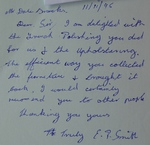 11/2/96
Dear Sir, I am delighted with
the French Polishing you did
for us & the Upholstering.
The efficient way you collected
the furniture & brought it
back, I would certainly
recommend you to other people
Thanking you yours
E. P. Smith